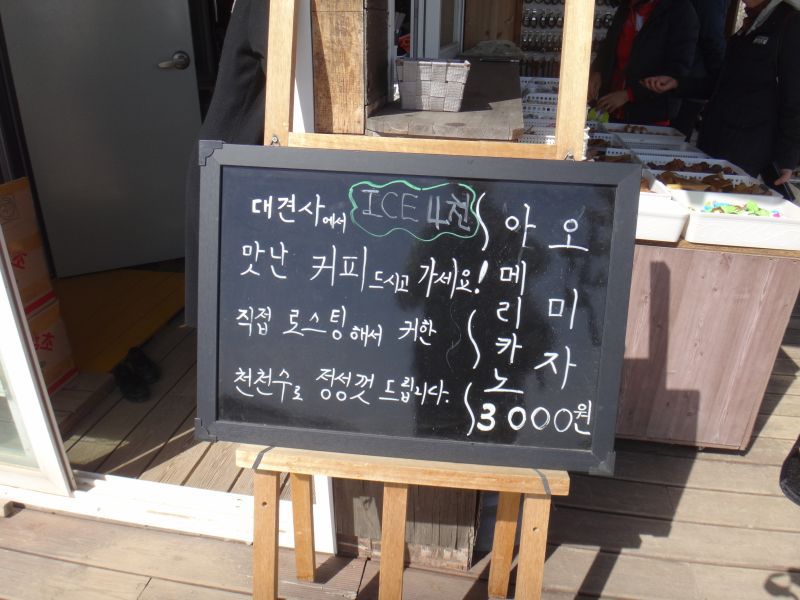 대견사에서 ICE 4천
맛난 커피 드시고 가세요!
직접 로스팅해서 귀한
천천수로 정성껏 드립니다.
아메리카노
오미자
3000원